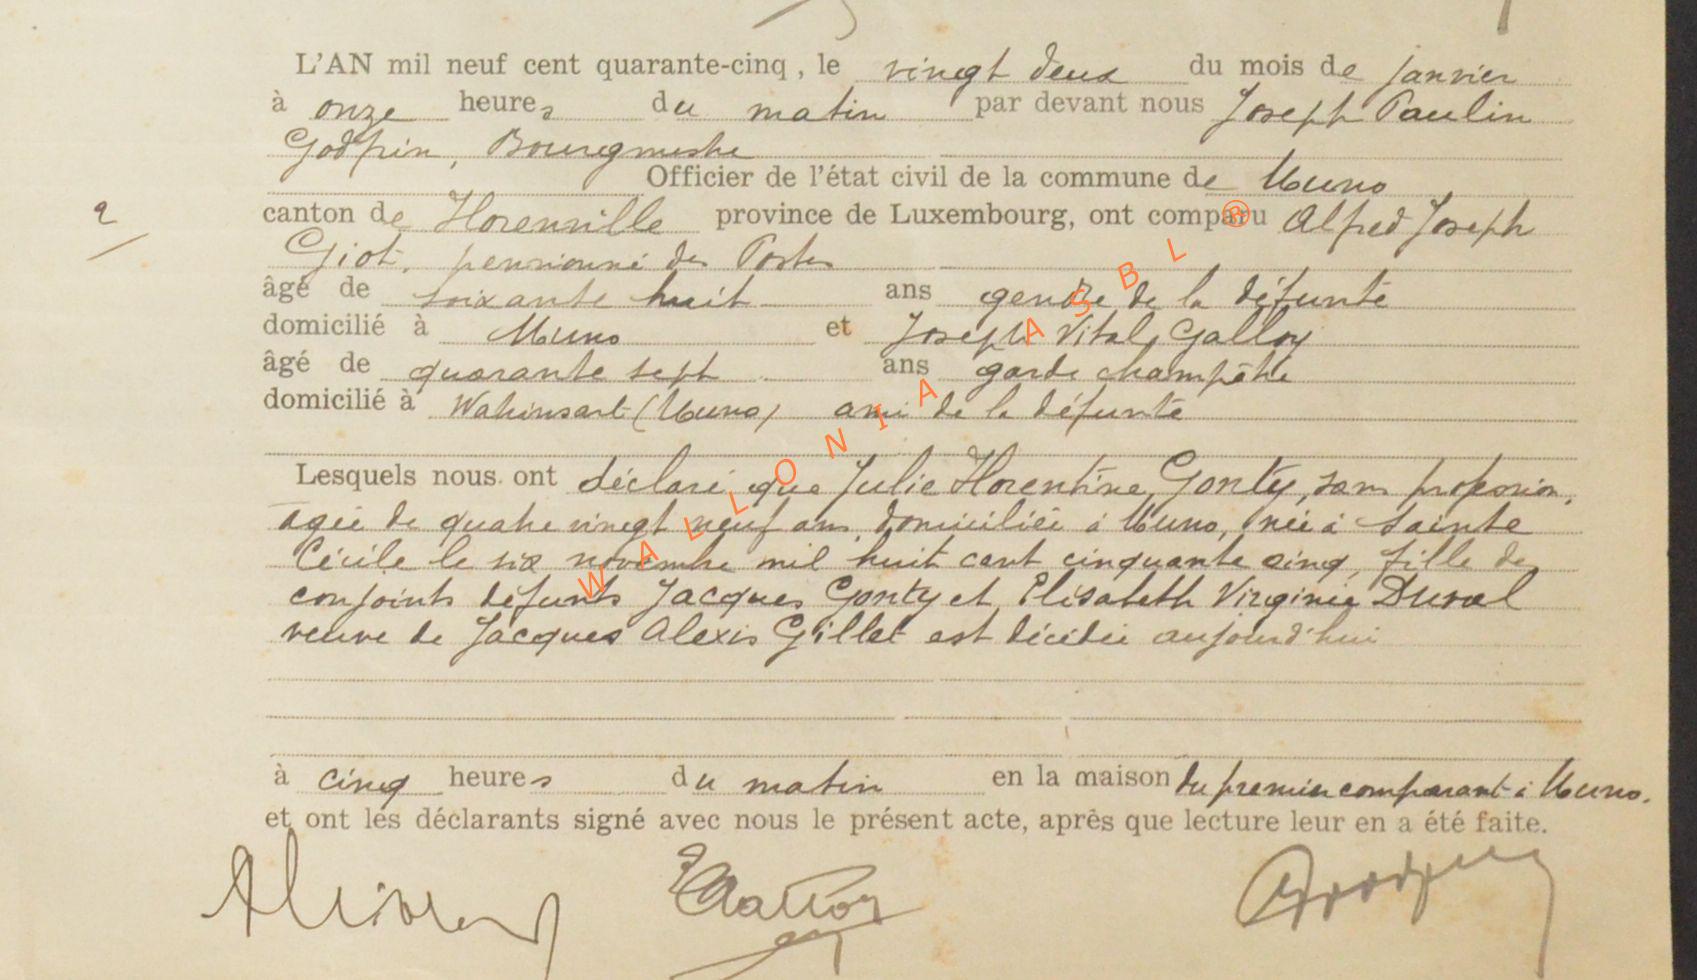 L'AN mil neuf cent quarante-cinq, le vingt deux du mois de janvier
à onze heures du matin par devant nous Joseph Paulin
Godfrin, Bourgmestre
Officier de l'état civil de la commune de Muno
2
canton de Florenville province de Luxembourg, ont comparu Alfred Joseph
Giot, pensionné des Postes
âgé de soixante huit ans gendre de la défunte
domicilié à Muno et Joseph Vital Galloy
âgé de quarante sept ans garde champêtre
domicilié à Wahinsart (Muno) ami de la défunte
Lesquels nous ont déclaré que Julie Florentine Gonty, sans profession,
agée de quatre vingt neuf ans, domiciliée à Muno, née à Sainte
Cécile le six novembre mil huit cent cinquante cinq, fille des
conjoints défunts Jacques Gonty et Elisabeth Virginie Duval
veuve de Jacques Alexis Gillet est décédée aujourd'hui
à cinq heures du matin en la maison du premier comparant à Muno.
et ont les déclarants signé avec nous le présent acte, après que lecture leur en a été faite.
WALLONIA ASBL ®